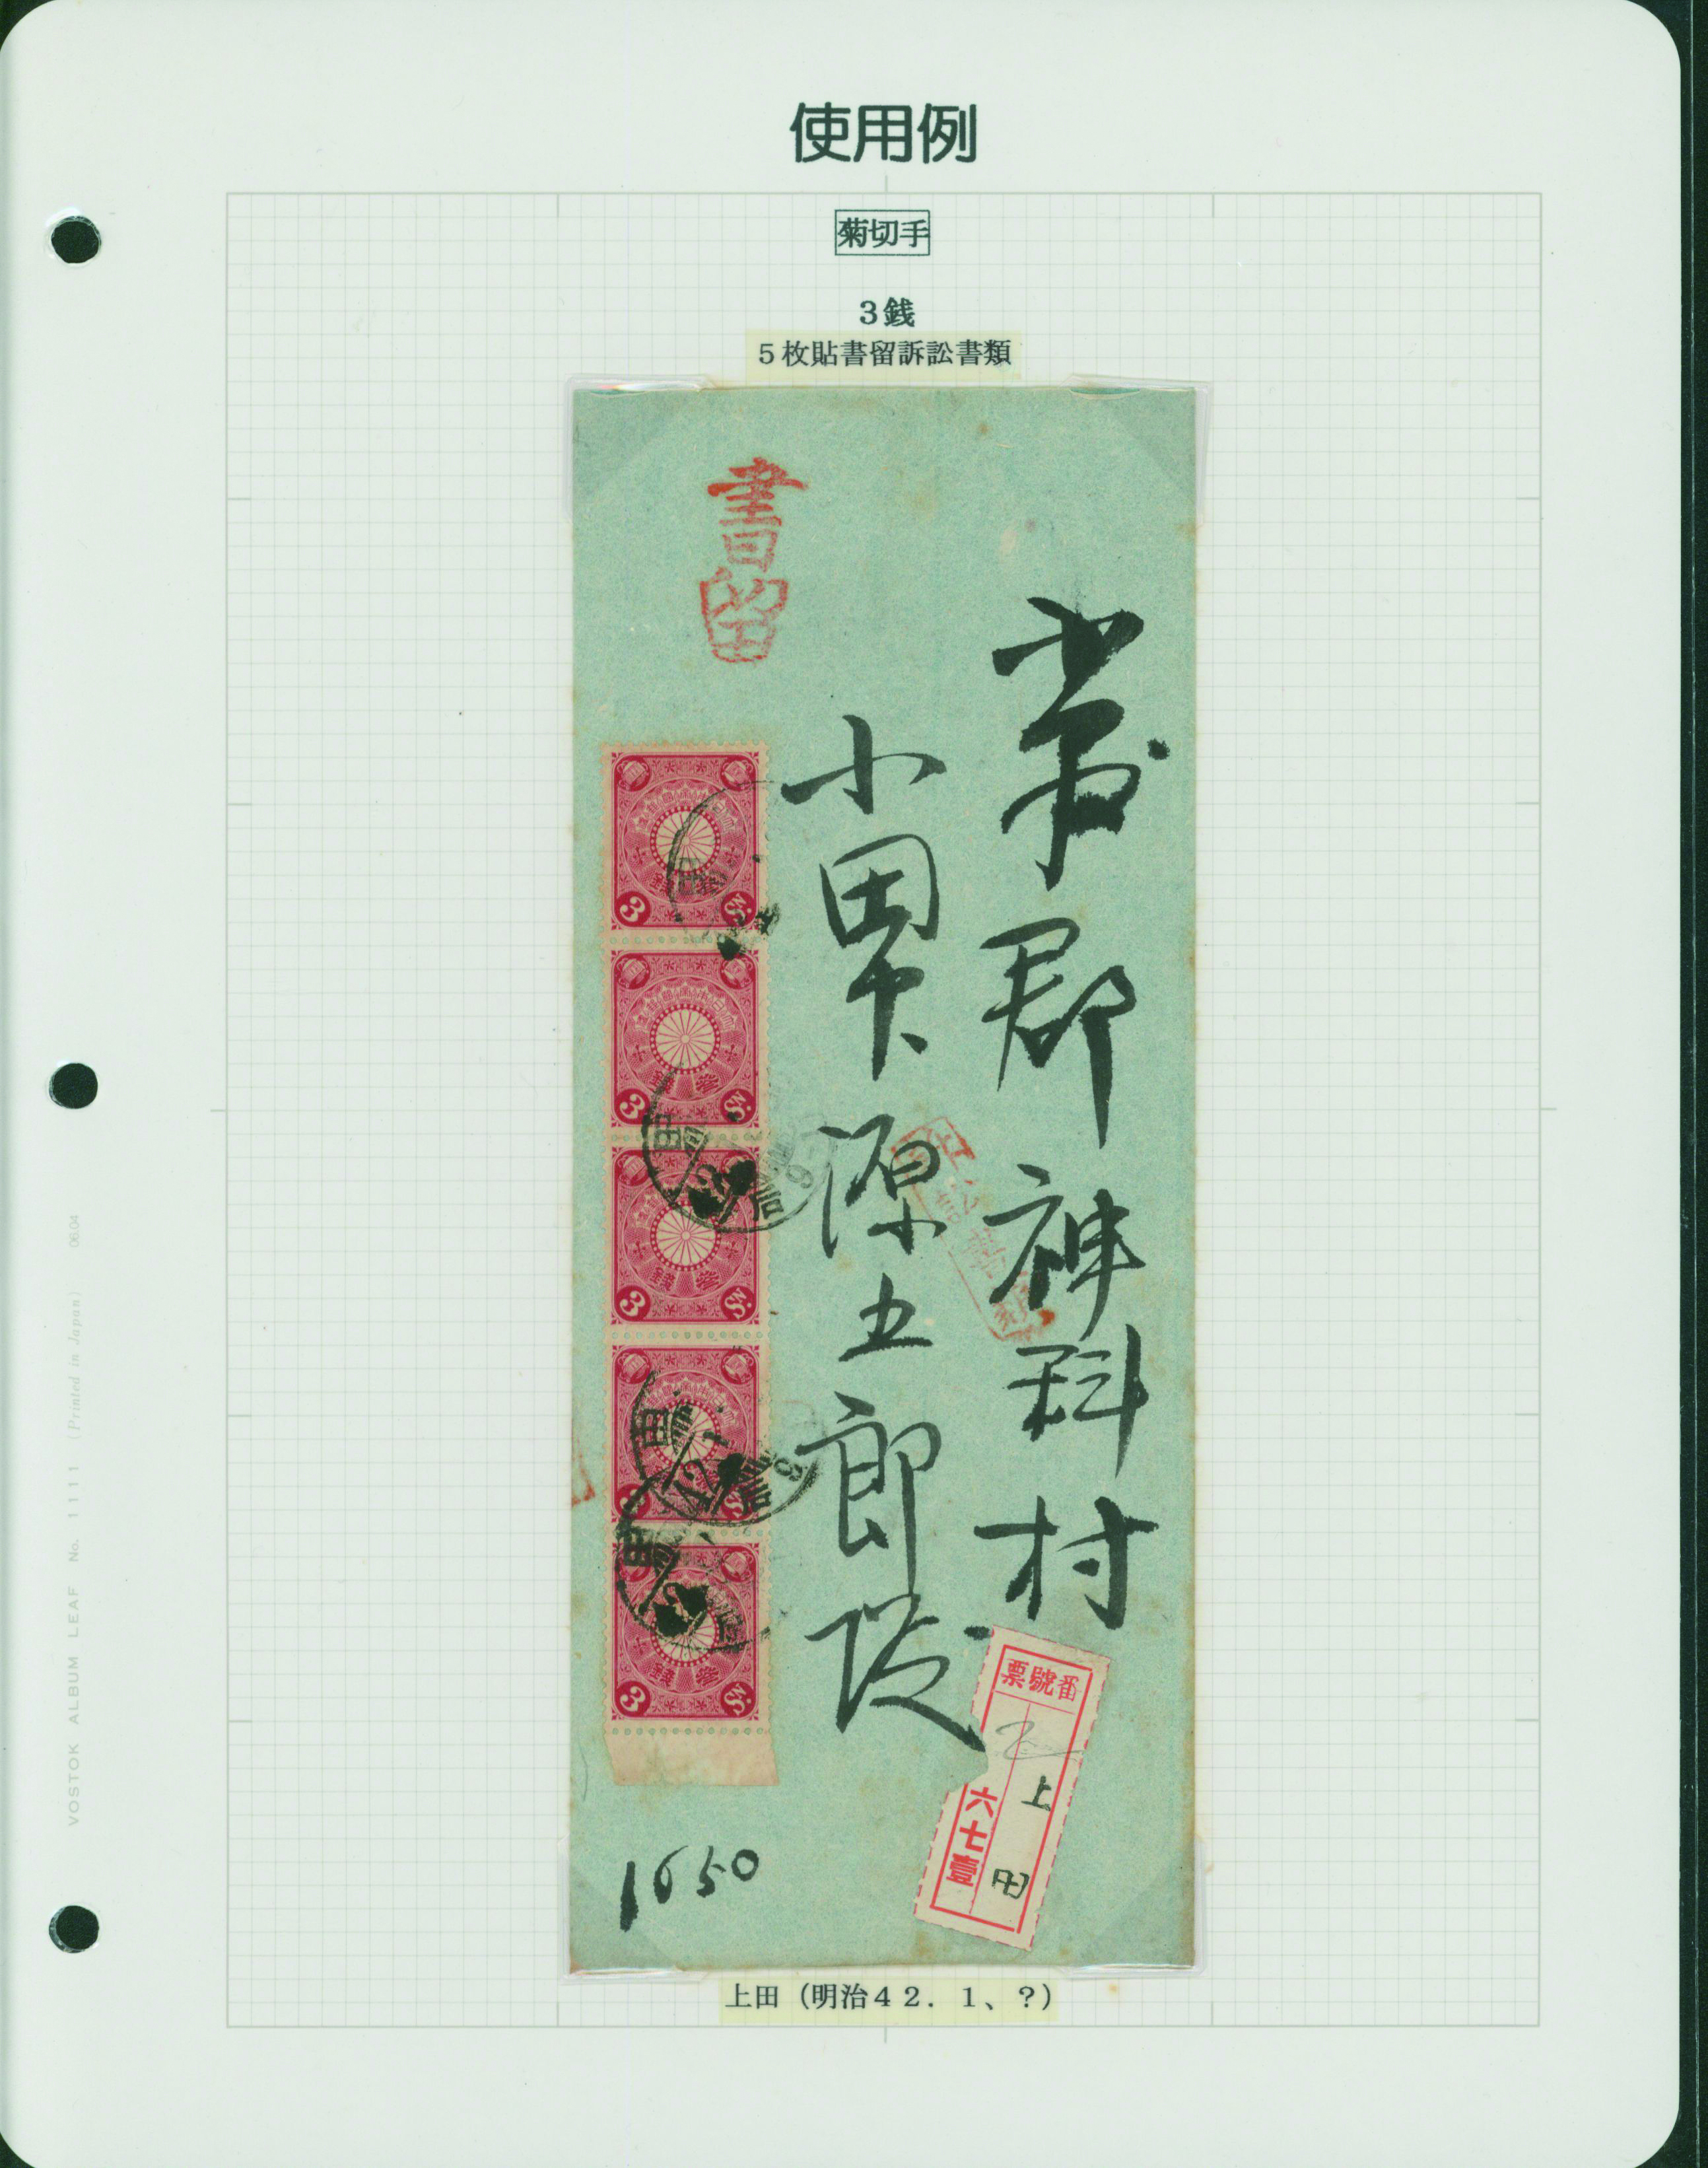 使用例
菊切手
3銭
5枚貼書留訴訟書類
書留
郡神科村
小田中源五郎殿
番號票
上田
六七壹
1650
上田（明治42．1、？）
VOSTOK ALBUM LEAF No. 1111 (Printed in Japan) 06.04